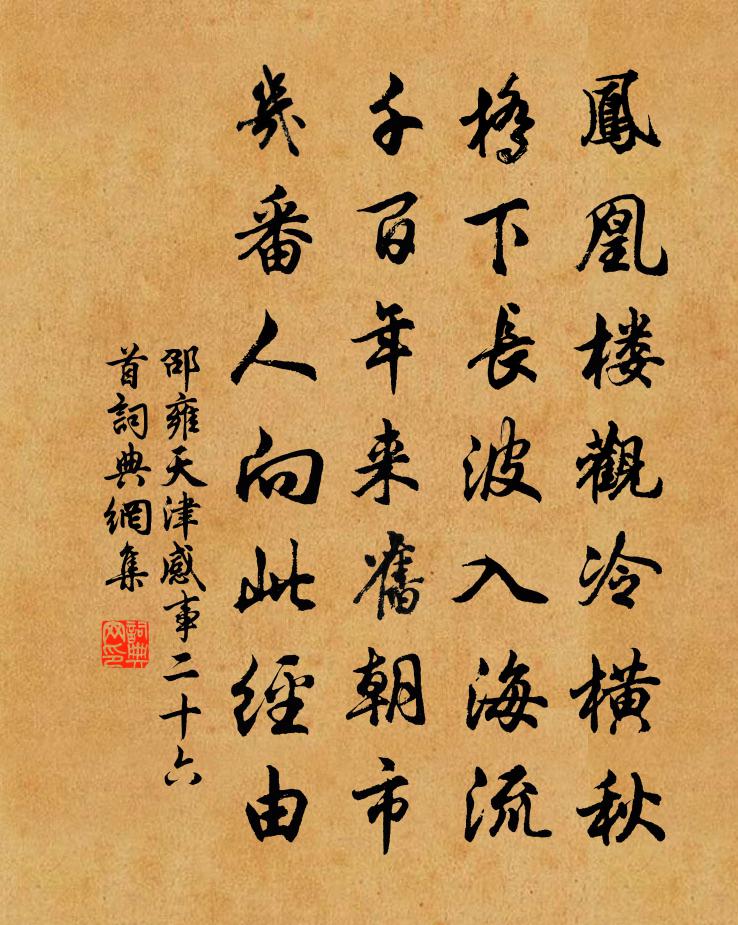 鳳凰楼觀冷横秋
橋下長波入海流
千百年来舊朝市
幾番人向此經由
邵雍天津感事二十六
首詞典網集
詞典
网印